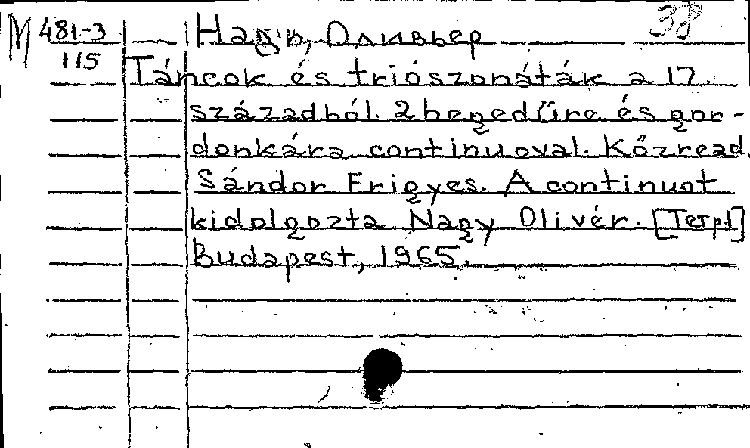 М 481-3
115
Надь, Оливьер
38
Táncok és triószonáták a 17.
századból. 2 hegedűre és gor-
donkára continuoval. Közread.
Sándor Frigyes. A continuot
kidolgozta Nagy Olivér. [Terps]
Budapest, 1965.